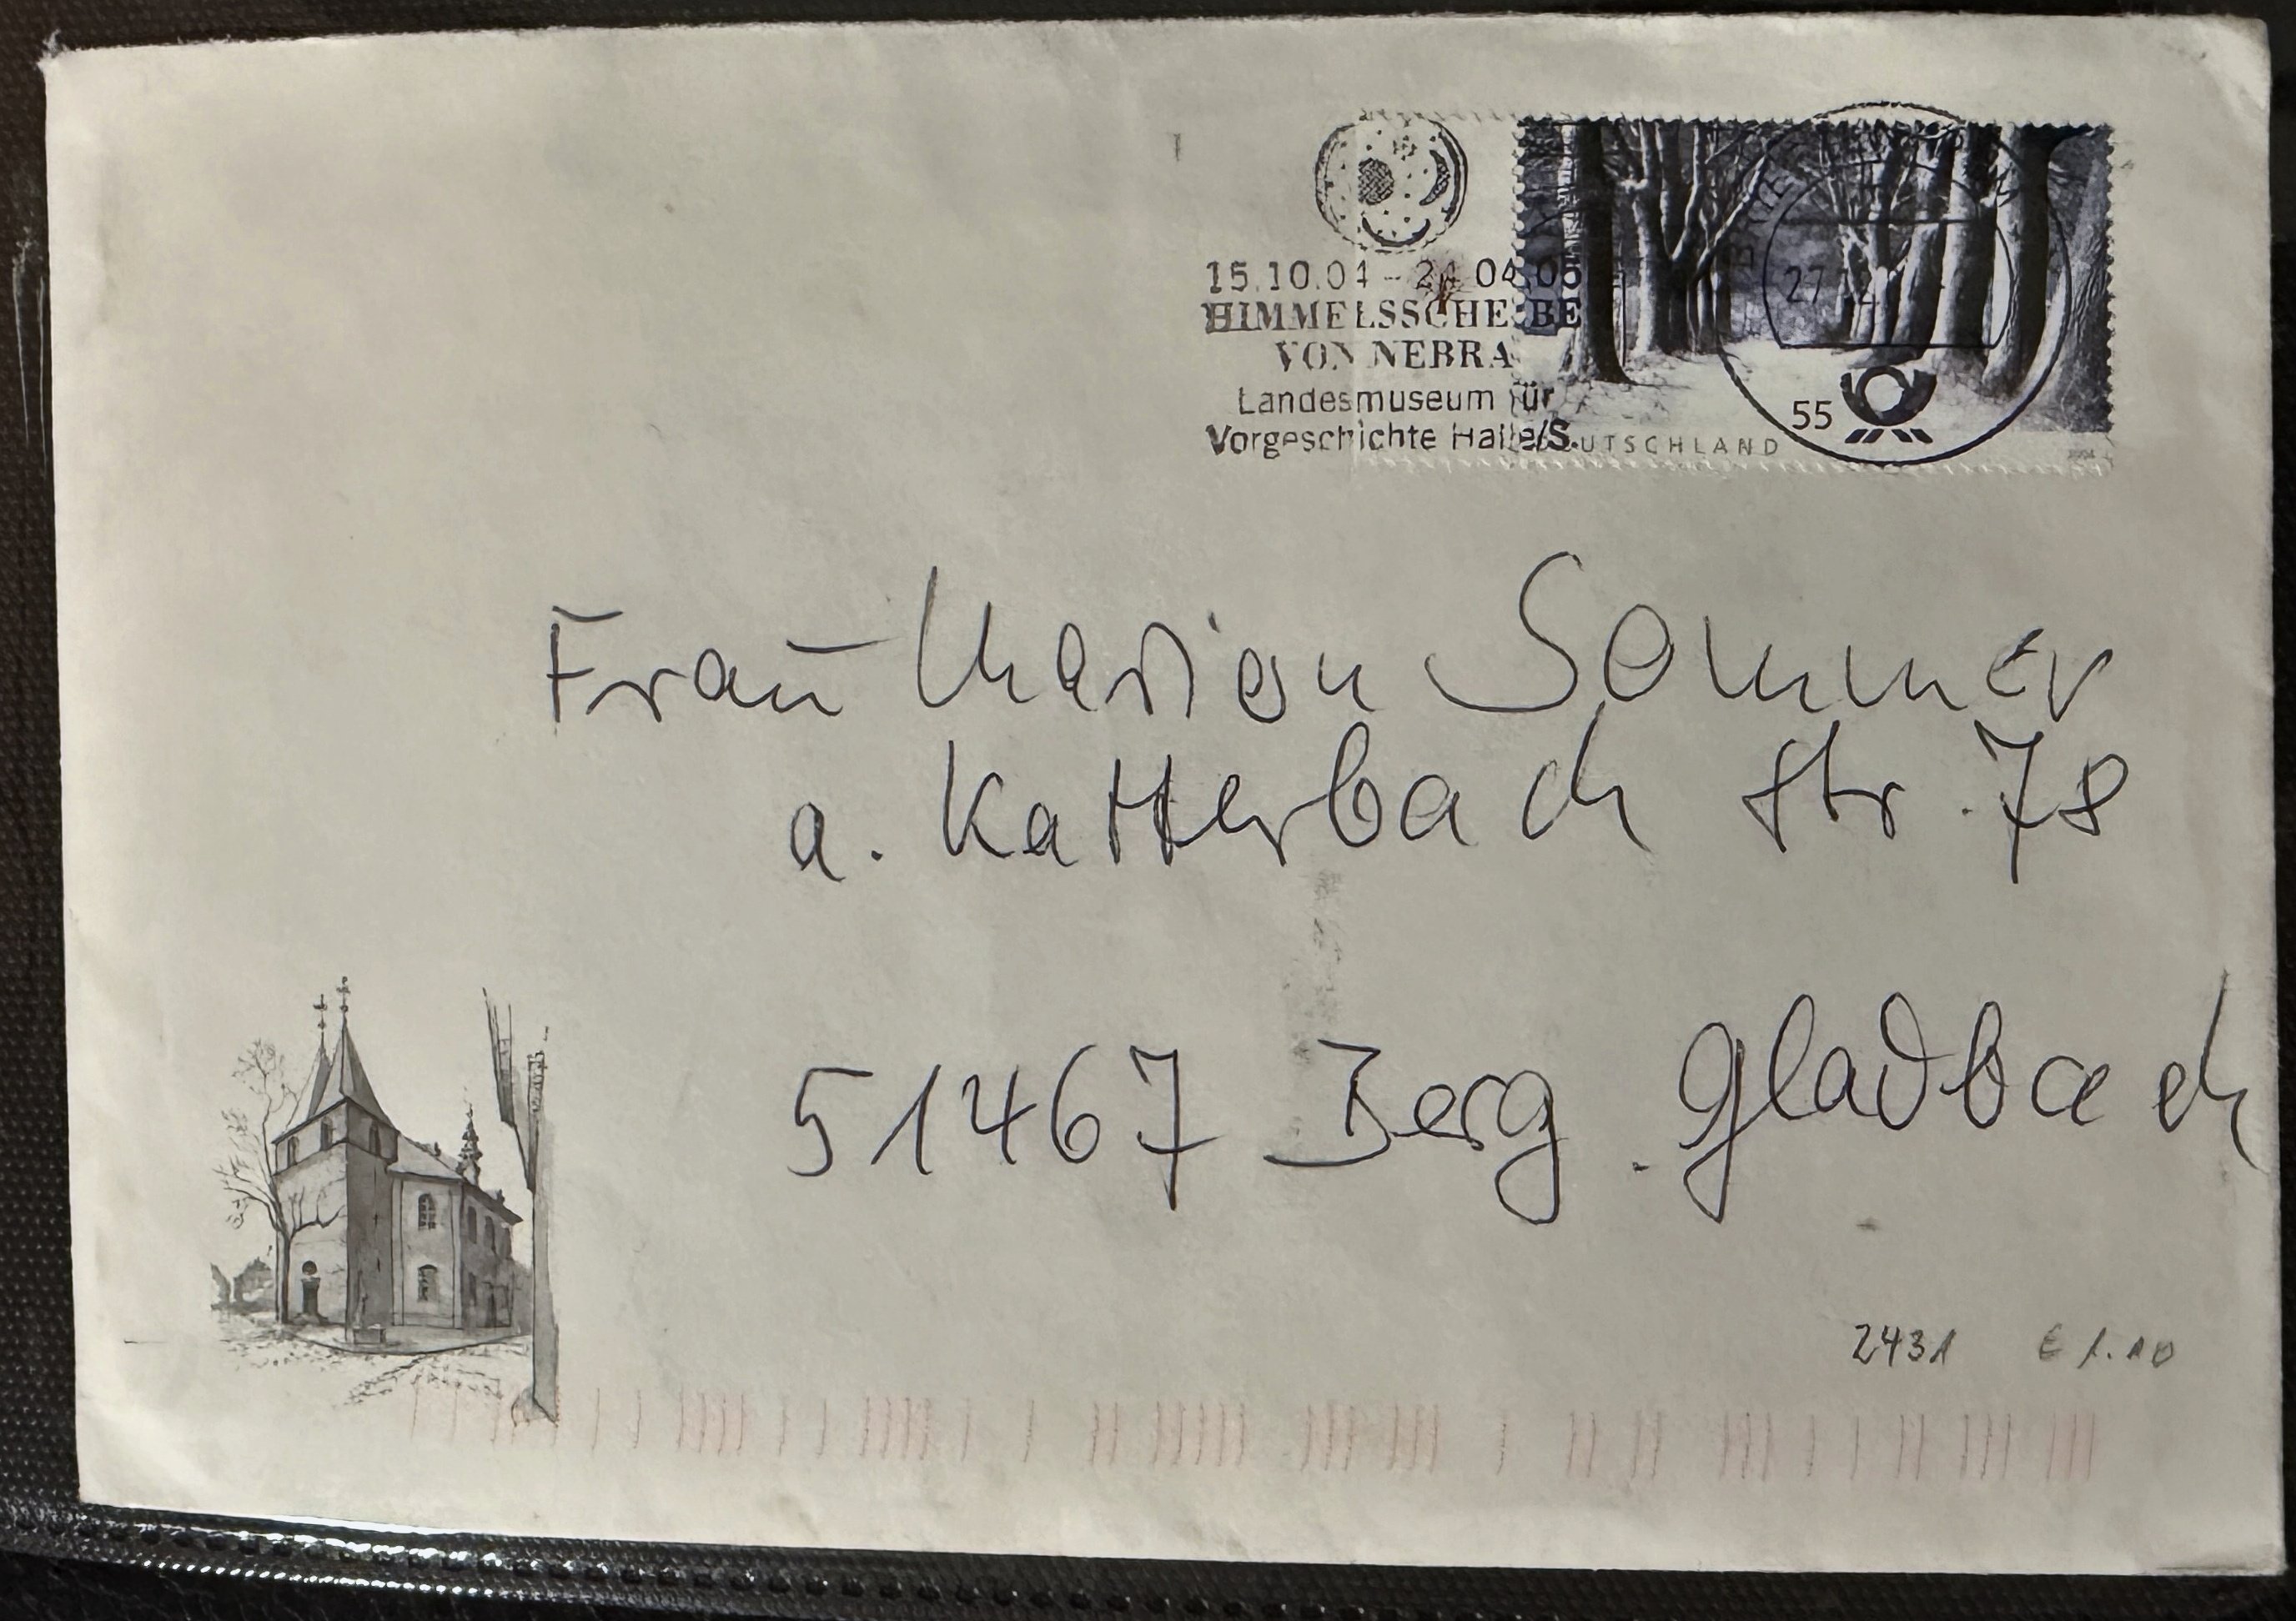 15.10.04 - 24.04.05
HIMMELSSCHEIBE
VON NEBRA
Landesmuseum für
Vorgeschichte Halle/S.
DEUTSCHLAND
2004
27
55
Frau Marion Sommer
a. Katterbach Str. 78
51467 Berg. Gladbach
2431 € 1.10